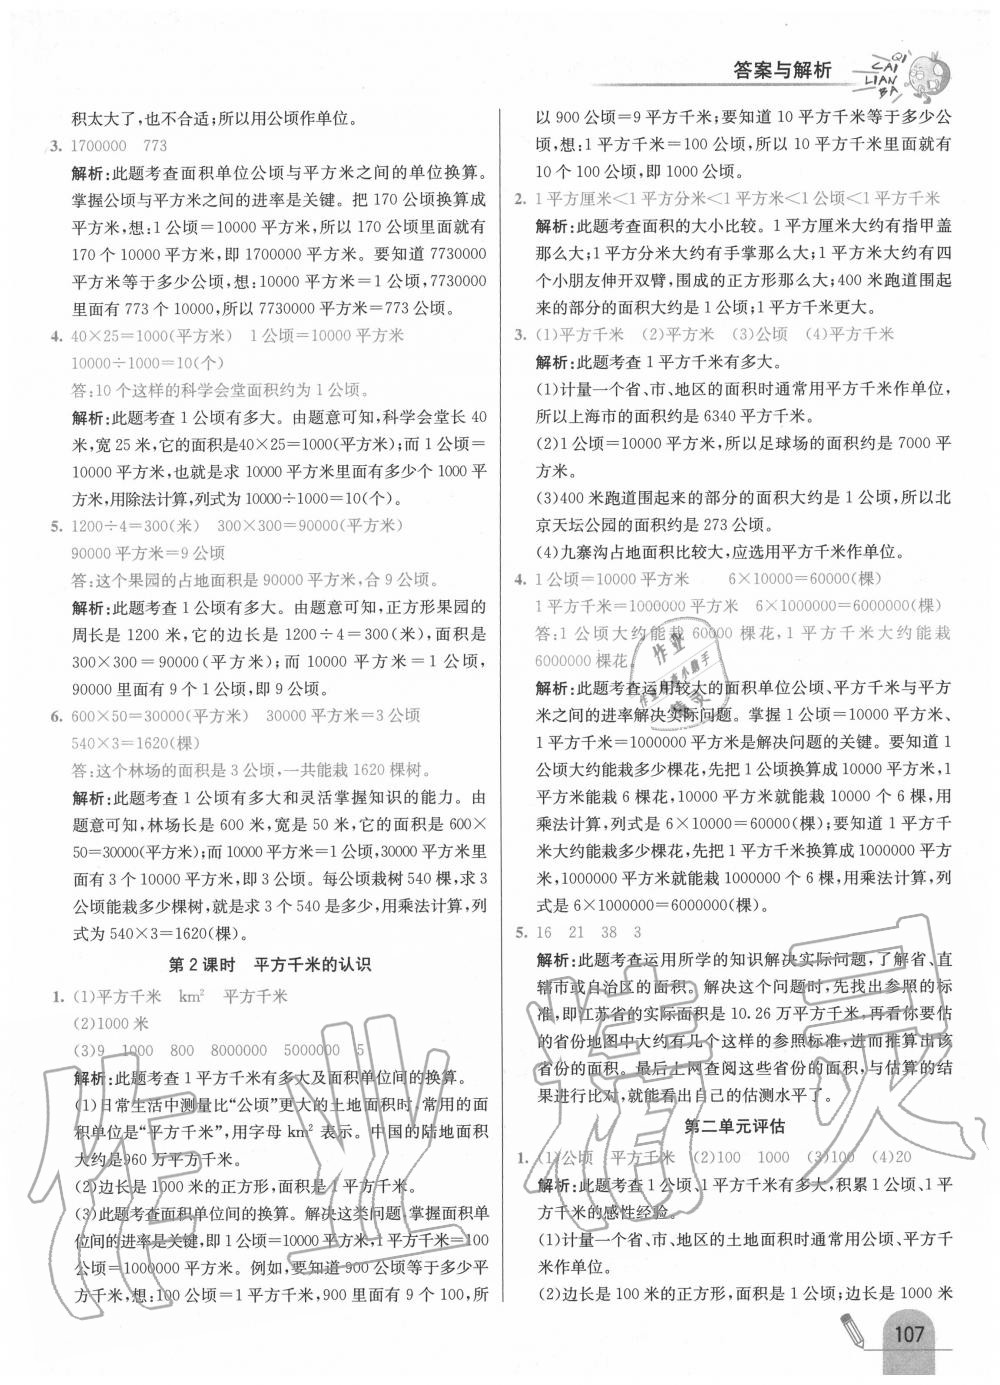 答案与解析
QI
CAI
LIAN
BA
积太大了,也不合适;所以用公顷作单位。
3. 1700000 773
解析:此题考查面积单位公顷与平方米之间的单位换算。
掌握公顷与平方米之间的进率是关键。把 170 公顷换算成
平方米,想:1 公顷=10000 平方米,所以 170 公顷里就有
170 个 10000 平方米,即 1700000 平方米。要知道 7730000
平方米等于多少公顷,想:10000 平方米=1 公顷,7730000
里面有 773 个 10000,所以 7730000 平方米=773 公顷。
4. 40×25=1000(平方米) 1 公顷=10000 平方米
10000÷1000=10(个)
答:10 个这样的科学会堂面积约为 1 公顷。
解析:此题考查 1 公顷有多大。由题意可知,科学会堂长 40
米,宽 25 米,它的面积是40×25=1000(平方米);而 1 公顷=
10000 平方米,也就是求 10000 平方米里面有多少个 1000 平
方米,用除法计算,列式为 10000÷1000=10(个)。
5. 1200÷4=300(米) 300×300=90000(平方米)
90000 平方米=9 公顷
答:这个果园的占地面积是 90000 平方米,合 9 公顷。
解析:此题考查 1 公顷有多大。由题意可知,正方形果园的
周长是 1200 米,它的边长是 1200÷4=300(米),面积是
300×300=90000(平方米);而 10000 平方米=1 公顷,
90000 里面有 9 个 1 公顷,即 9 公顷。
6. 600×50=30000(平方米) 30000 平方米=3 公顷
540×3=1620(棵)
答:这个林场的面积是 3 公顷,一共能栽 1620 棵树。
解析:此题考查 1 公顷有多大和灵活掌握知识的能力。由
题意可知,林场长是 600 米,宽是 50 米,它的面积是 600×
50=30000(平方米);而 10000 平方米=1公顷,30000 平方米里
面有 3 个 10000 平方米,即 3公顷。每公顷栽树 540 棵,求 3
公顷能栽多少棵树,就是求 3 个 540 是多少,用乘法计算,列
式为 540×3=1620(棵)。
第 2 课时 平方千米的认识
1. (1)平方千米 km² 平方千米
(2)1000 米
(3)9 1000 800 8000000 5000000 5
解析:此题考查 1 平方千米有多大及面积单位间的换算。
(1)日常生活中测量比“公顷”更大的土地面积时,常用的面
积单位是“平方千米”,用字母 km² 表示。中国的陆地面积
大约是960 万平方千米。
(2)边长是 1000 米的正方形,面积是 1 平方千米。
(3)此题考查面积单位间的换算。解决这类问题,掌握面积单
位间的进率是关键,即 1公顷=10000 平方米,1 平方千米=100
公顷=1000000 平方米。例如,要知道 900 公顷等于多少平
方千米,想:100 公顷=1 平方千米,900 里面有 9 个 100,所
以 900 公顷=9 平方千米;要知道 10 平方千米等于多少公
顷,想:1 平方千米=100 公顷,所以 10 平方千米里面就有
10 个 100 公顷,即 1000 公顷。
2. 1 平方厘米<1 平方分米<1 平方米<1 公顷<1 平方千米
解析:此题考查面积的大小比较。1 平方厘米大约有指甲盖
那么大;1 平方分米大约有手掌那么大;1 平方米大约有四
个小朋友伸开双臂,围成的正方形那么大;400 米跑道围起
来的部分的面积大约是 1 公顷;1 平方千米更大。
3. (1)平方千米 (2)平方米 (3)公顷 (4)平方千米
解析:此题考查 1 平方千米有多大。
(1)计量一个省、市、地区的面积时通常用平方千米作单位,
所以上海市的面积约是 6340 平方千米。
(2)1 公顷=10000 平方米,所以足球场的面积约是 7000 平
方米。
(3)400 米跑道围起来的部分的面积大约是 1 公顷,所以北
京天坛公园的面积约是 273 公顷。
(4)九寨沟占地面积比较大,应选用平方千米作单位。
4. 1 公顷=10000 平方米 6×10000=60000(棵)
1 平方千米=1000000 平方米 6×1000000=6000000(棵)
答:1 公顷大约能栽 60000 棵花,1 平方千米大约能栽
6000000 棵花。
解析:此题考查运用较大的面积单位公顷、平方千米与平方
米之间的进率解决实际问题。掌握 1 公顷=10000 平方米、
1 平方千米=1000000 平方米是解决问题的关键。要知道 1
公顷大约能栽多少棵花,先把 1 公顷换算成 10000 平方米,1
平方米能栽 6 棵花,10000 平方米就能栽 10000 个 6 棵,用
乘法计算,列式是 6×10000=60000(棵);要知道 1 平方千
米大约能栽多少棵花,先把 1 平方千米换算成 1000000 平方
米,1000000 平方米就能栽 1000000 个 6 棵,用乘法计算,列
式是 6×1000000=6000000(棵)。
5. 16 21 38 3
解析:此题考查运用所学的知识解决实际问题,了解省、直
辖市或自治区的面积。解决这个问题时,先找出参照的标
准,即江苏省的实际面积是 10.26 万平方千米,再看你要估
的省份地图中大约有几个这样的参照标准,进而推算出该
省份的面积。最后上网查阅这些省份的面积,与估算的结
果进行比对,就能看出自己的估测水平了。
第二单元评估
1. (1)公顷 平方千米 (2)100 1000 (3)100 (4)20
解析:此题考查 1 公顷、1 平方千米有多大,积累 1 公顷、1 平
方千米的感性经验。
(1)计量一个省、市、地区的土地面积时通常用公顷、平方千
米作单位。
(2)边长是 100 米的正方形,面积是 1 公顷;边长是 1000 米
107
作业精灵
作业
作业检查小助手
精灵